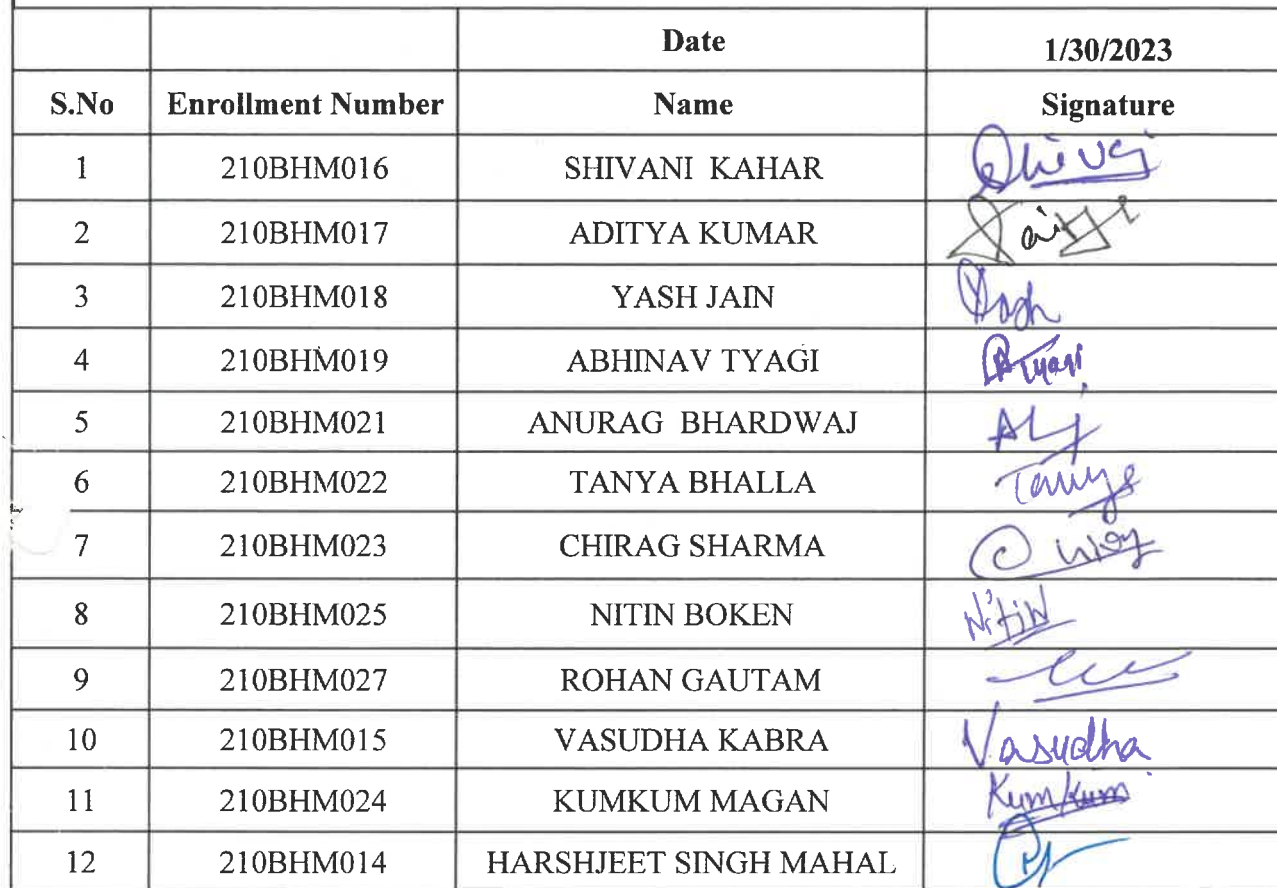 Date 1/30/2023
S.No Enrollment Number Name Signature
1 210BHM016 SHIVANI KAHAR
2 210BHM017 ADITYA KUMAR
3 210BHM018 YASH JAIN Yash
4 210BHM019 ABHINAV TYAGI ATyagi
5 210BHM021 ANURAG BHARDWAJ
6 210BHM022 TANYA BHALLA Tanya
7 210BHM023 CHIRAG SHARMA
8 210BHM025 NITIN BOKEN NitiN
9 210BHM027 ROHAN GAUTAM
10 210BHM015 VASUDHA KABRA Vasudha
11 210BHM024 KUMKUM MAGAN Kumkum
12 210BHM014 HARSHJEET SINGH MAHAL